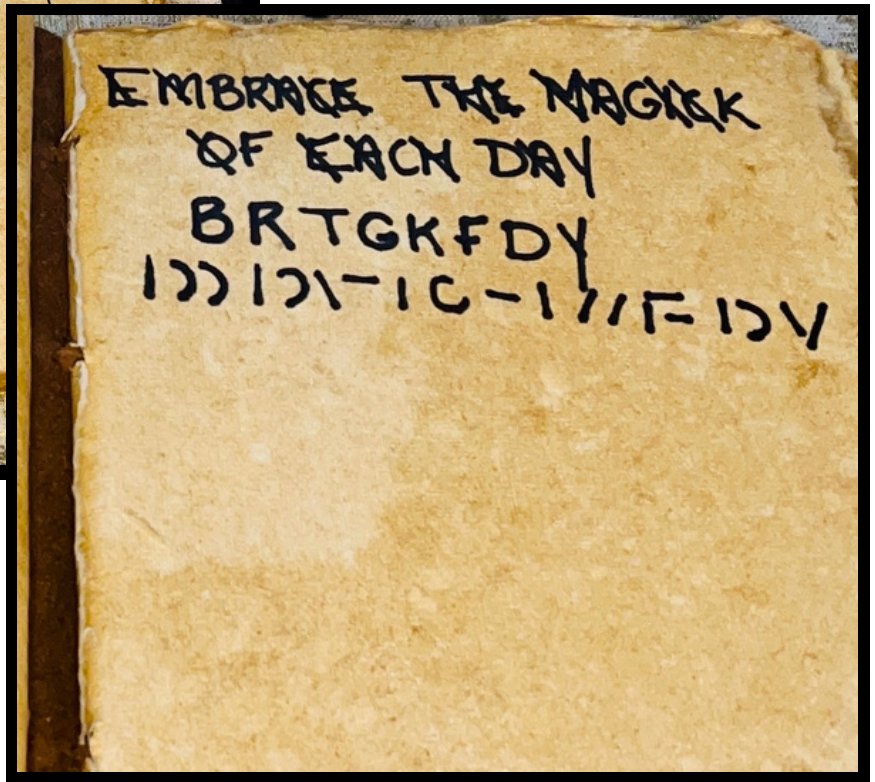 EMBRACE THE MAGICK
OF EACH DAY
BRTGKFDY